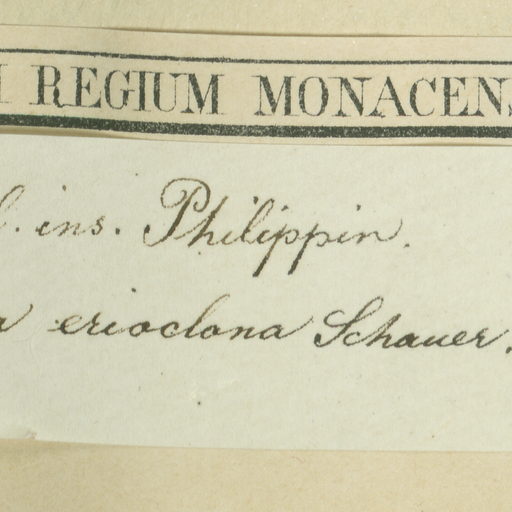 REGIUM MONACEN
. ins. Philippin.
erioclona Schauer.